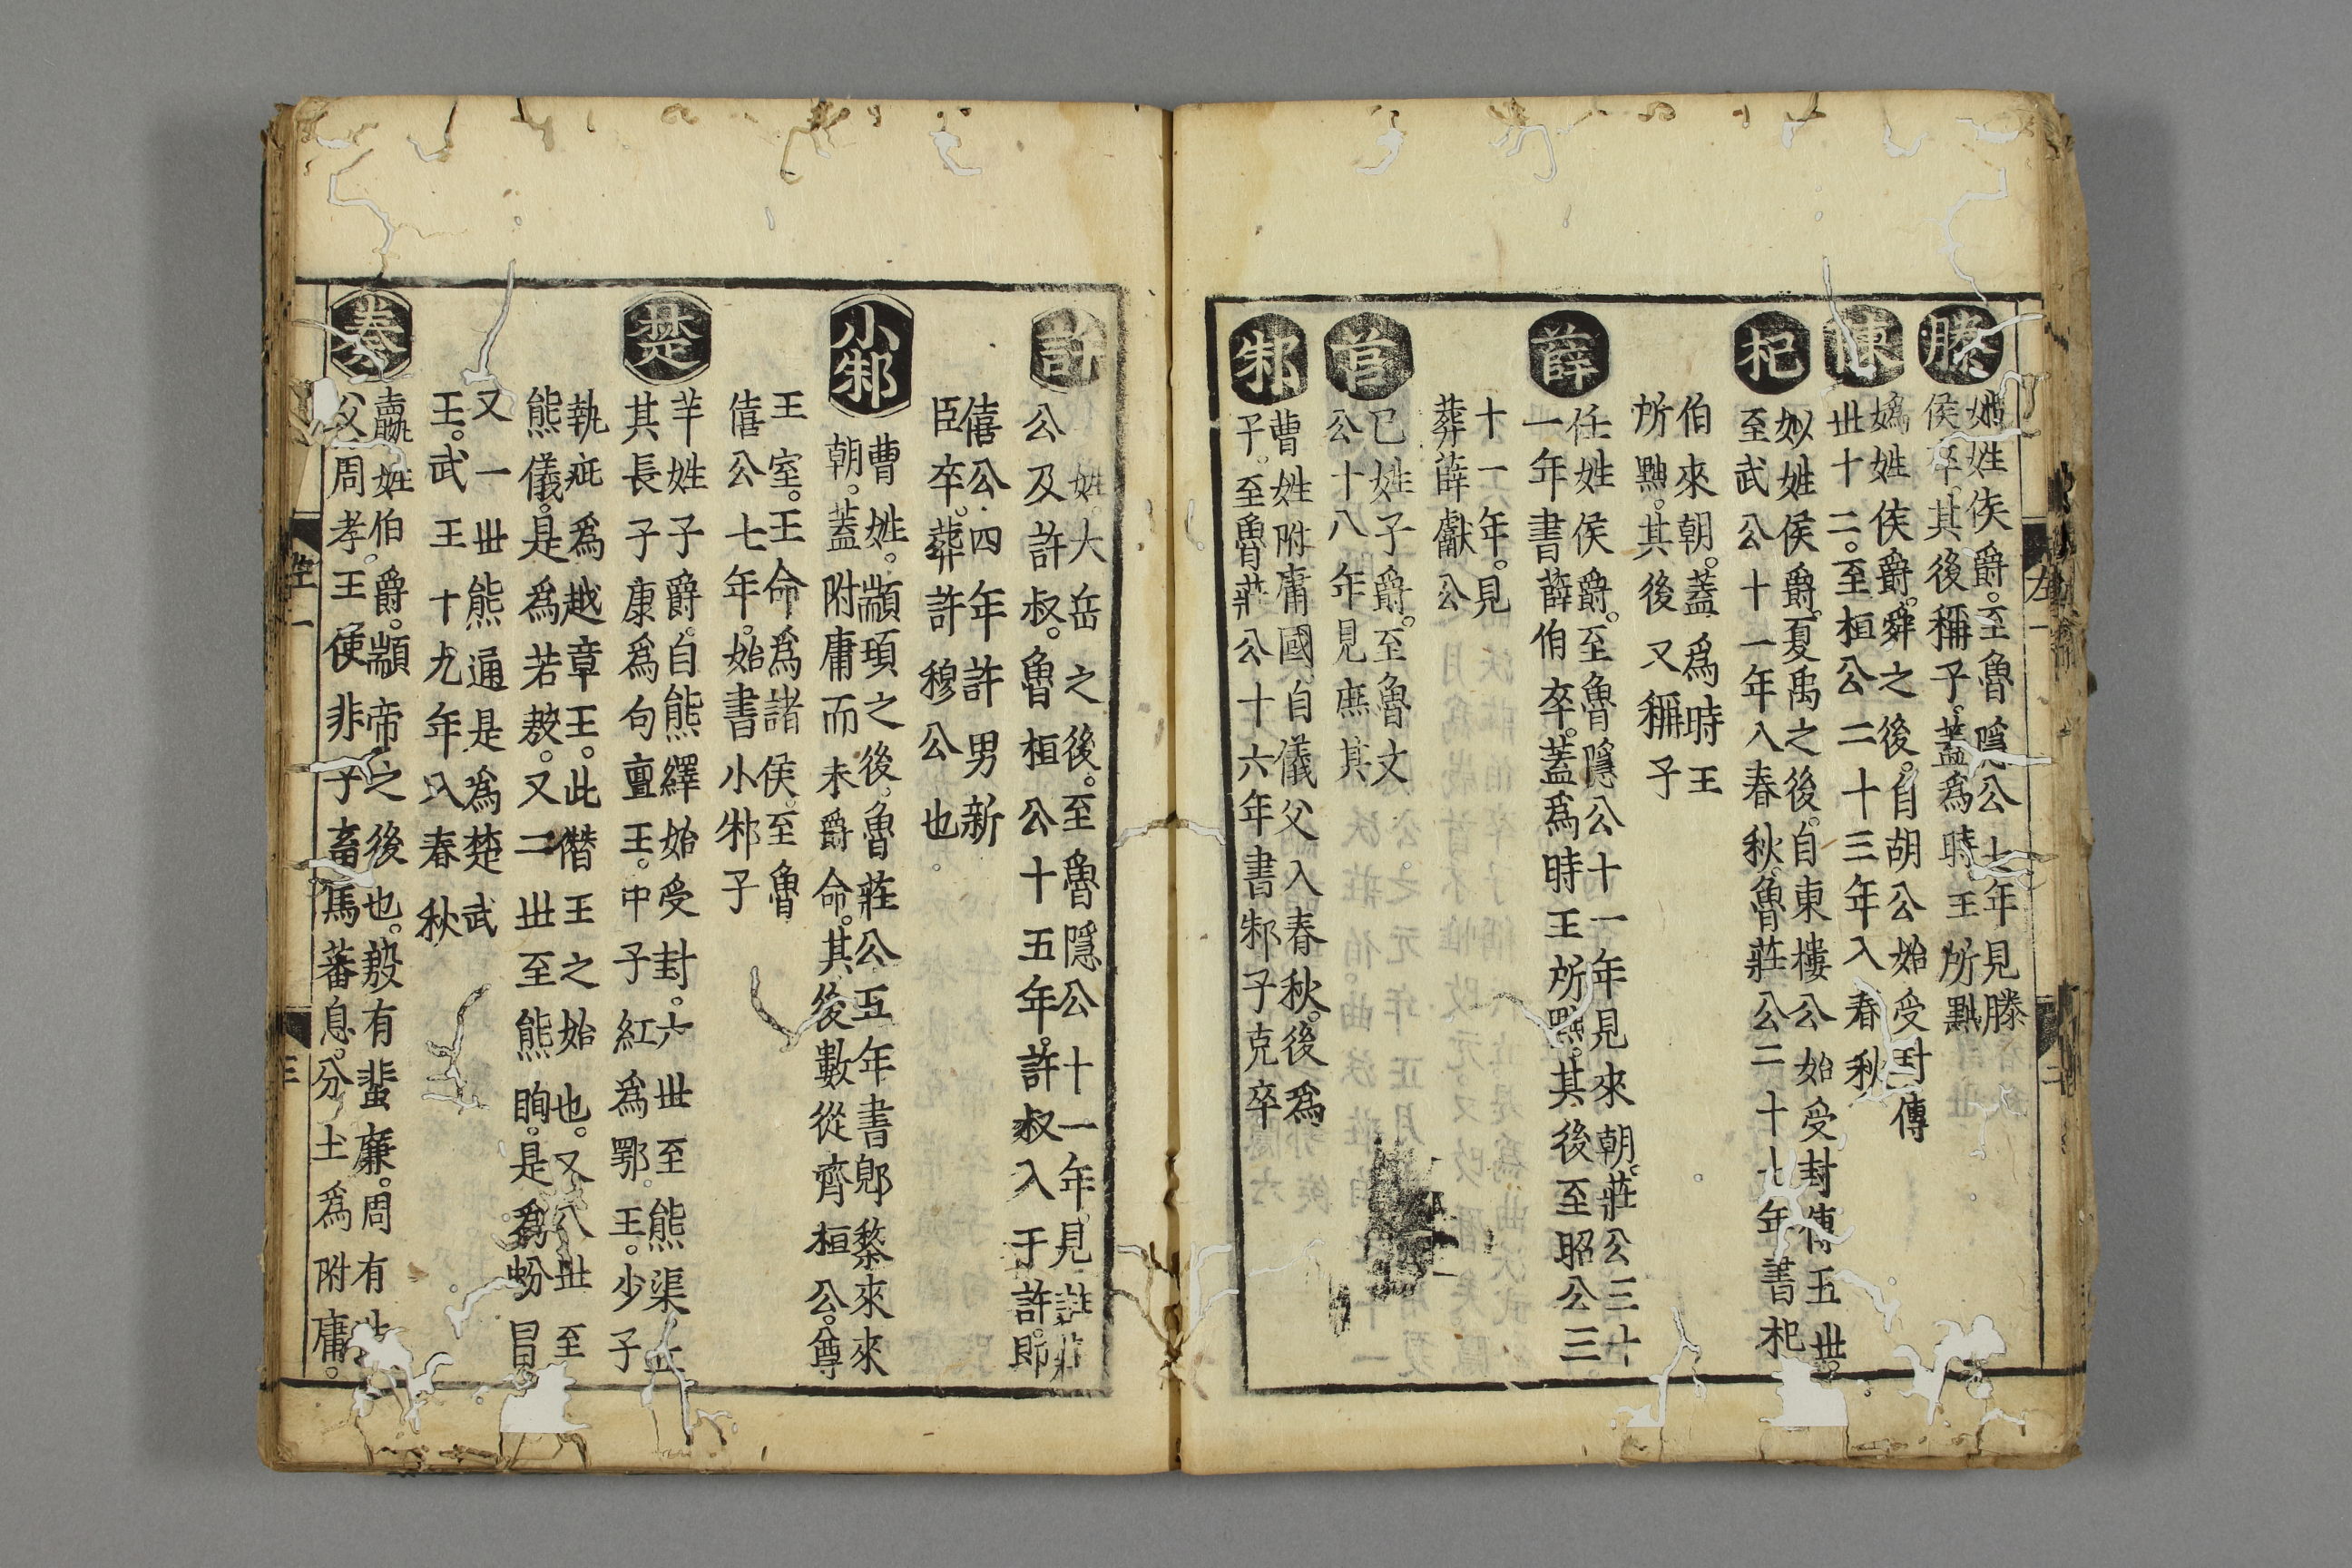 滕
姬姓侯爵。至魯隱公七年見滕
侯卒。其後稱子。蓋爲時王所黜
陳
嬀姓侯爵。舜之後。自胡公始受封傳
世十二。至桓公二十三年入春秋
杞
姒姓侯爵。夏禹之後。自東樓公始受封傳五世。
至武公十一年入春秋。魯莊公二十七年書杞
伯來朝。蓋爲時王
所黜。其後又稱子
薛
任姓侯爵。至魯隱公十一年見來朝。莊公三十
一年書薛伯卒。蓋爲時王所黜。其後至昭公三
十一年。見
葬薛獻公
莒
已姓子爵。至魯文
公十八年見庶其
邾
曹姓附庸國自儀父入春秋。後爲
子。至魯莊公十六年書邾子克卒
許
姓。大岳之後。至魯隱公十一年。見許莊
公及許叔。魯桓公十五年。許叔入于許。卽
僖公四年許男新
臣卒。葬許穆公也。
小邾
曹姓。顓頊之後。魯莊公五年書郳黎來來
朝。蓋附庸而未爵命。其後數從齊桓公。尊
王室。王命爲諸侯。至魯
僖公七年。始書小邾子
楚
羋姓子爵。自熊繹始受封。六世至熊渠立
其長子康爲句亶王。中子紅爲鄂王。少子
執疵爲越章王。此僭王之始也。又八世至
熊儀。是爲若敖。又二世至熊眴。是爲蚡冒。
又一世熊通是爲楚武
王。武王十九年入春秋
秦
嬴姓伯爵。顓帝之後也。殷有蜚廉。周有
父。周孝王使非子畜馬蕃息。分土爲附庸。
左一
二
三